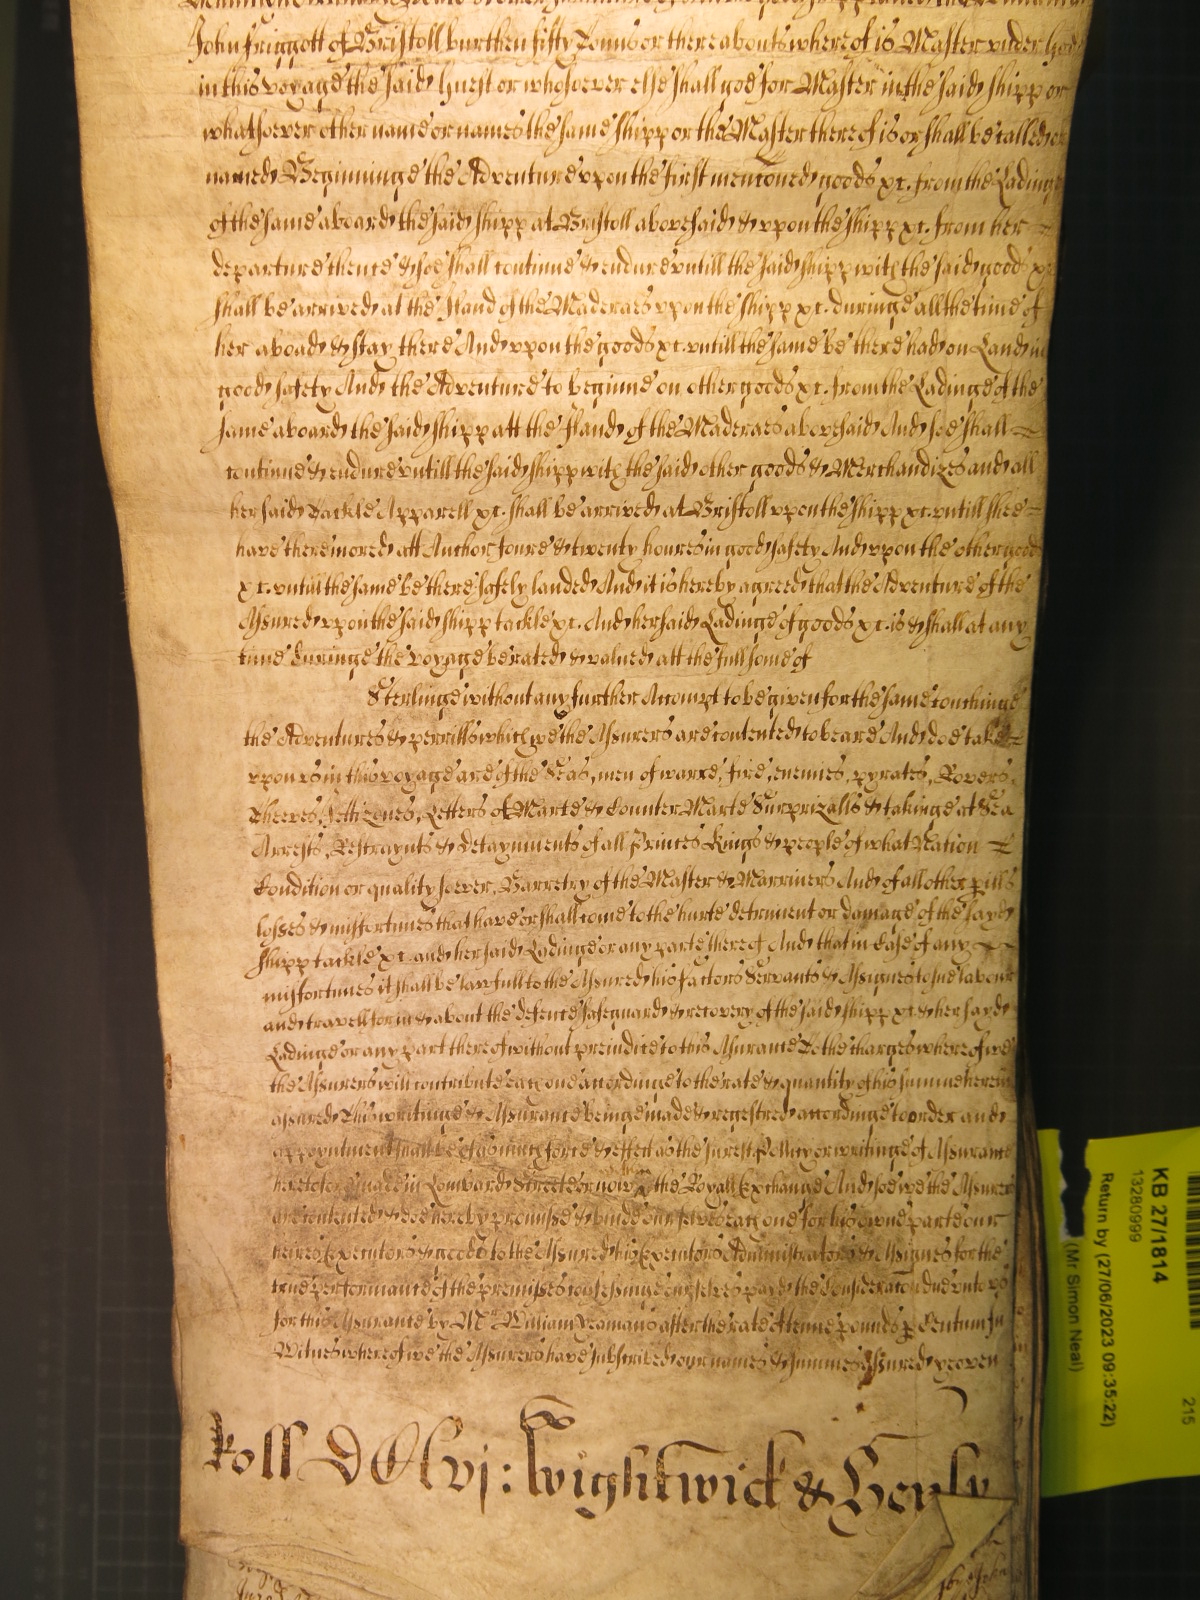 John Friggott of Bristoll burthen fifty Tonns or thereabouts whereof is Master under God
in this voyage the said Guest or whosoever else shall goe for Master in the said shipp or
whatsoever other name or names the same shipp or the Master thereof is or shall be called or
named Beginninge the Adventure upon the first mentioned goods xc. from the Ladinge
of the same aboard the said shipp at Bristoll abovesaid & upon the shipp xc. from her
departure thence & soe shall continue & endure untill the said shipp with the said goods xc
shall be arrived at the Iland of the Maderaes upon the shipp xc. duringe all the time of
her aboad & stay there And upon the goods xc. untill the same be there had on Land in
good safety And the Adventure to beginne on other goods xc. from the Ladinge of the
same aboard the said shipp att the Iland of the Maderaes abovesaid And soe shall
continue & endure untill the said shipp with the said other goods & Merchandizes and all
her said Tackle Apparell xc. shall be arrived at Bristoll upon the shipp xc. untill shee
have there mored att Anchor foure & twenty houres in good safety And upon the other goods
xc. untill the same be there safely landed And it is hereby agreed that the Adventure of the
Assured upon the said shipp tackle xc. And her said Ladinge of goods xc. is & shall at any
time duringe the voyage be rated & valued att the full some of
Sterlinge without any further Accompt to be given for the same touchinge
the Adventures & perrills which we the Assurers are contented to beare And doe take
upon us in this voyage are of the Seas, men of warre, fire, enemies, pyrates, Rovers,
Theeves, Jettizones, Letters of Marte & Counter Marte Surprizalls & takinge at Sea
Arrests, Restraynts & Detaynments of all Princes Kings & people of what Nation
Condition or quality soever, Barretry of the Master & Marriners And of all other perills
losses & misfortunes that have or shall come to the hurte detriment or damage of the sayd
shipp tackle xc. and her said Ladinge or any parte thereof And that in Case of any
misfortunes it shall be lawfull to the Assured his factors Servants & Assignes to sue labour
and travell for in & about the defence safeguard & recovery of the said shipp xc & her sayd
Ladinge or any part thereof without prejudice to this Assurance To the charges whereof we
the Assurers will contribute each one accordinge to the rate & quantity of his summe herein
assured This writinge & Assurance beinge made & regestred accordinge to order and
appoyntment shall be of as much force & effect as the surest Pollicy or writinge of Assurance
heretofore made in Lomward Streete or now in the Royall Exchange And soe we the Assurers
are contented & doe hereby promisse & binde our selves each one for his owne parte our
heires Executors & goods to the Assured his Executors Administrators & Assignes for the
true performance of the premisses confessinge our selves payd the Consideracon due unto us
for this Assurance by Mr William Yeamans after the rate of tenne pounds p Centum In
Witnes whereof we the Assurers have subscribed our names & summes Assured yeoven
Roll DClvj: Wightwick & Henly
KB 27/1814
13280999
Return by (27/06/2023 09:35:22)
(Mr Simon Neal)
215